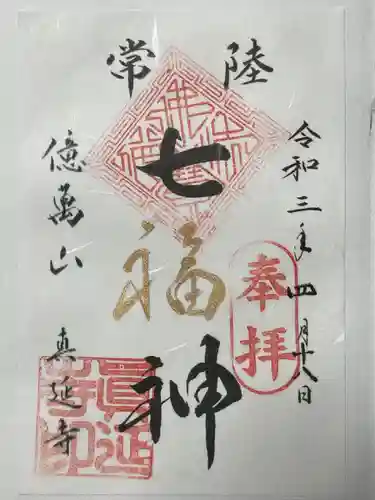 常陸
七福神
令和三年四月十八日
奉拝
億萬山
真延寺
真延寺印